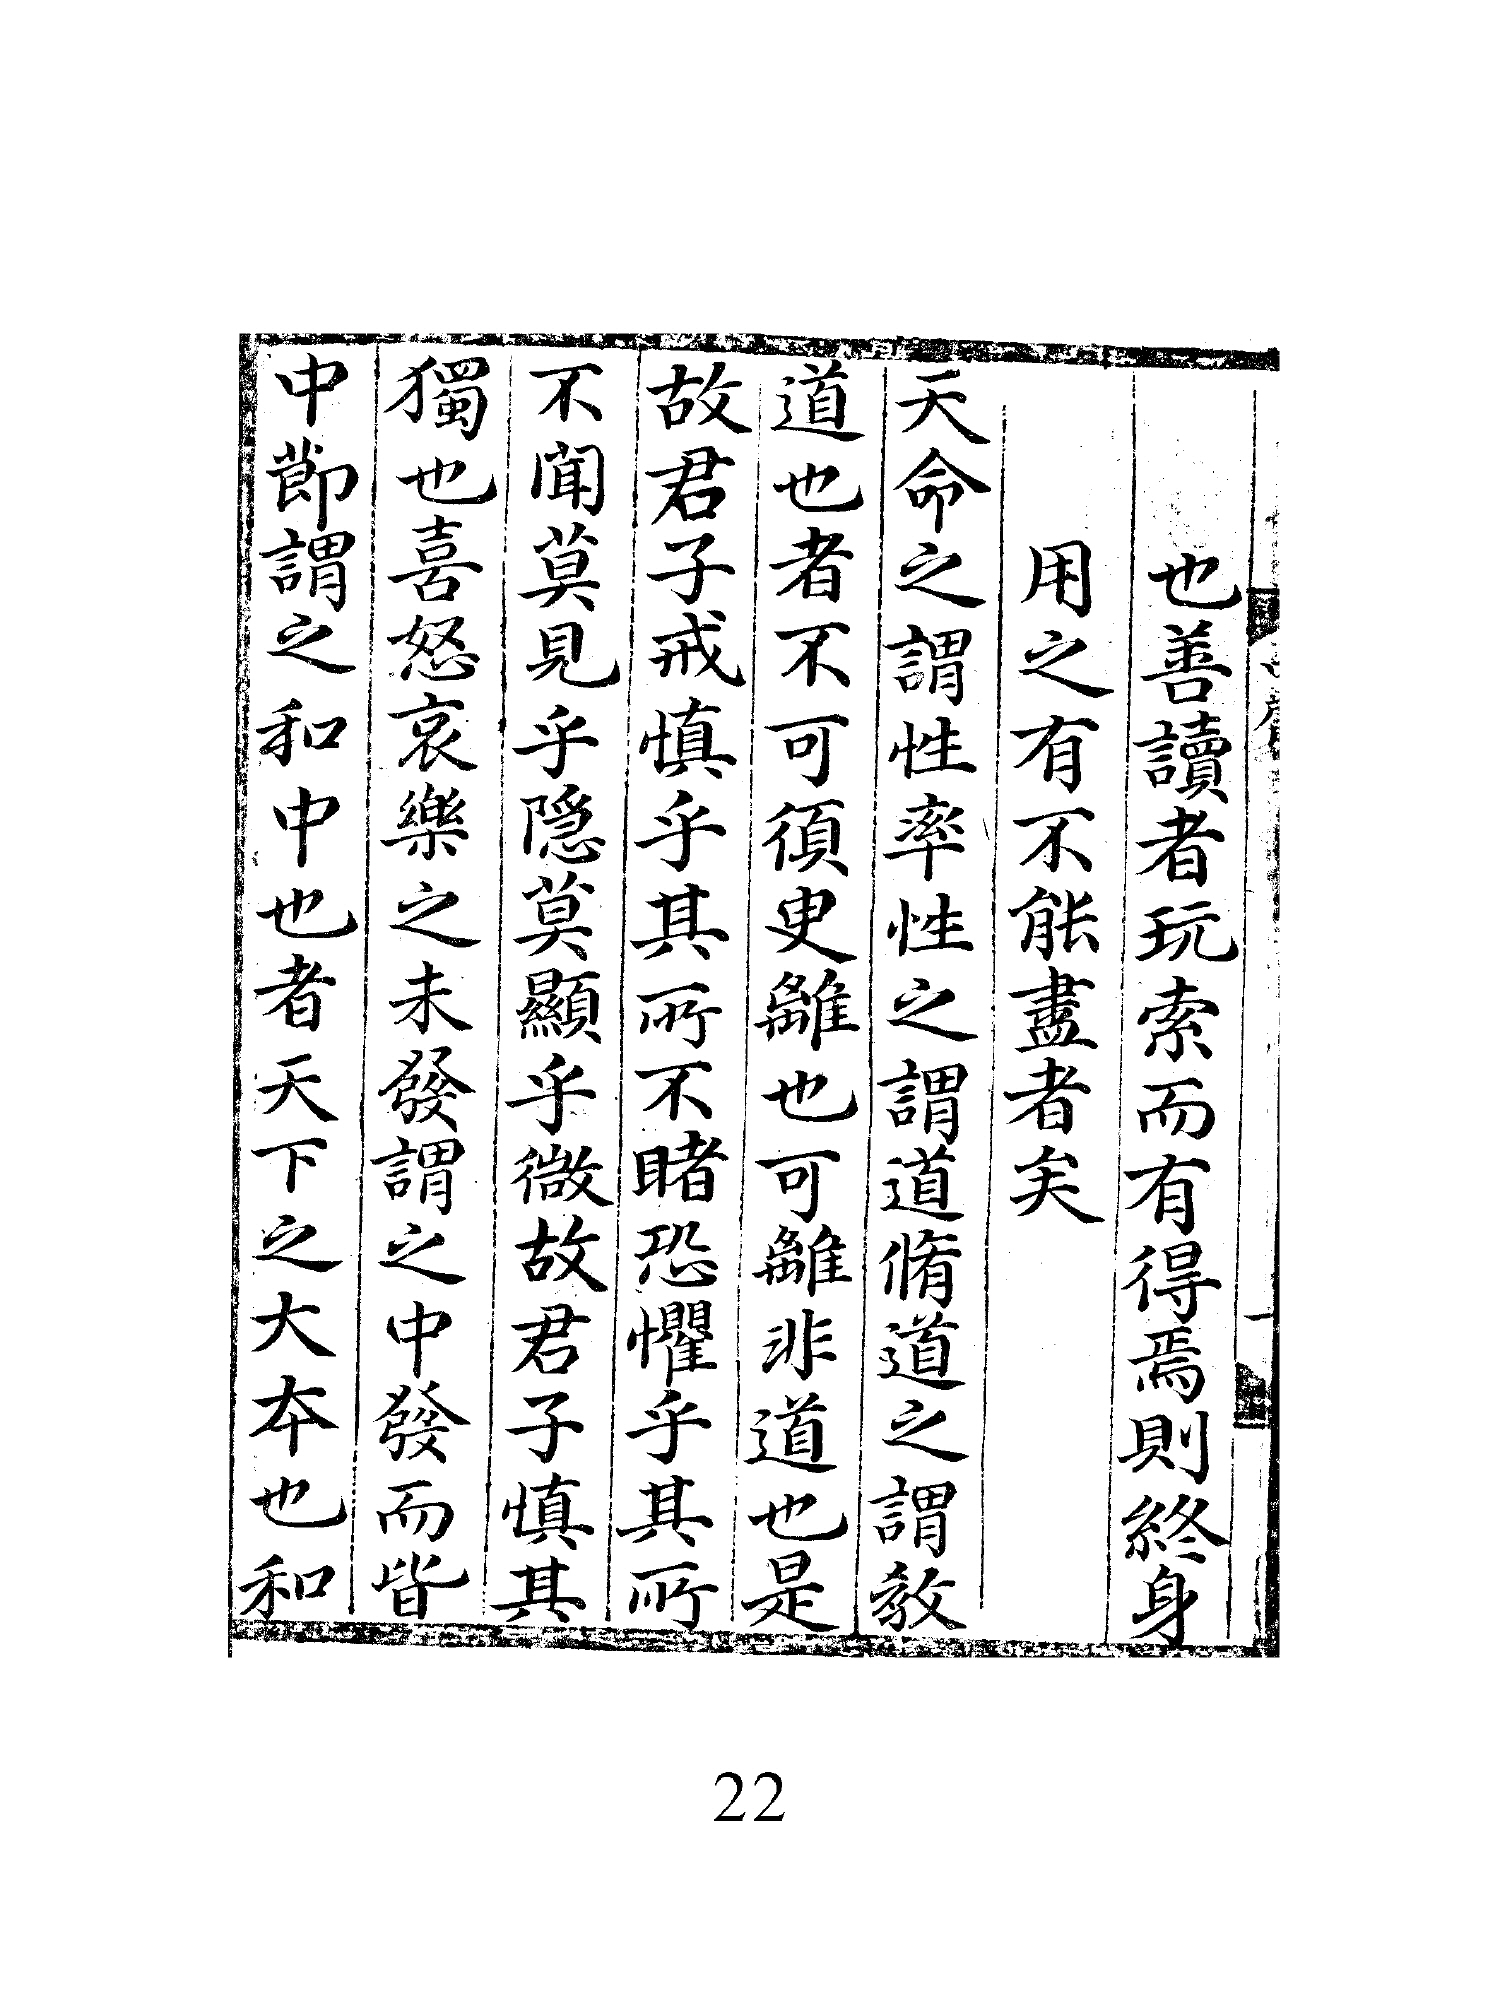 也善讀者玩索而有得焉則終身
用之有不能盡者矣
天命之謂性率性之謂道脩道之謂敎
道也者不可須臾離也可離非道也是
故君子戒慎乎其所不睹恐懼乎其所
不聞莫見乎隠莫顯乎微故君子慎其
獨也喜怒哀樂之未發謂之中發而皆
中節謂之和中也者天下之大本也和
22